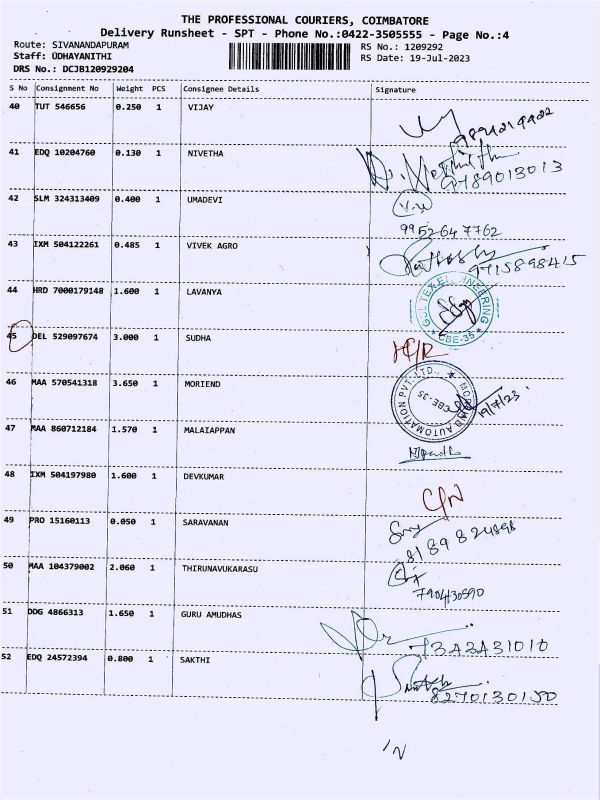 THE PROFESSIONAL COURIERS, COIMBATORE
Delivery Runsheet - SPT - Phone No.:0422-3505555 - Page No.:4
Route: SIVANANDAPURAM
RS No.: 1209292
Staff: UDHAYANITHI
RS Date: 19-Jul-2023
DRS No.: DCJB120929204
S No Consignment No Weight PCS Consignee Details Signature
40 TUT 546656 0.250 1 VIJAY
41 EDQ 10204760 0.130 1 NIVETHA
9789013013
42 SLM 324313409 0.400 1 UMADEVI
9952647762
43 IXM 504122261 0.485 1 VIVEK AGRO
9715898415
44 HRD 7000179148 1.600 1 LAVANYA
CBE-35
45 DEL 529097674 3.000 1 SUDHA
46 MAA 570541318 3.650 1 MORIEND
AUTOMATION PVT. LTD.,
CBE-35
19/7/23
47 MAA 860712184 1.570 1 MALAIAPPAN
48 IXM 504197980 1.600 1 DEVKUMAR
C/N
49 PRO 15160113 0.050 1 SARAVANAN
8189824898
50 MAA 104379002 2.060 1 THIRUNAVUKARASU
7904430590
51 DDG 4866313 1.650 1 GURU AMUDHAS
7323431010
52 EDQ 24572394 0.800 1 SAKTHI
8270130150